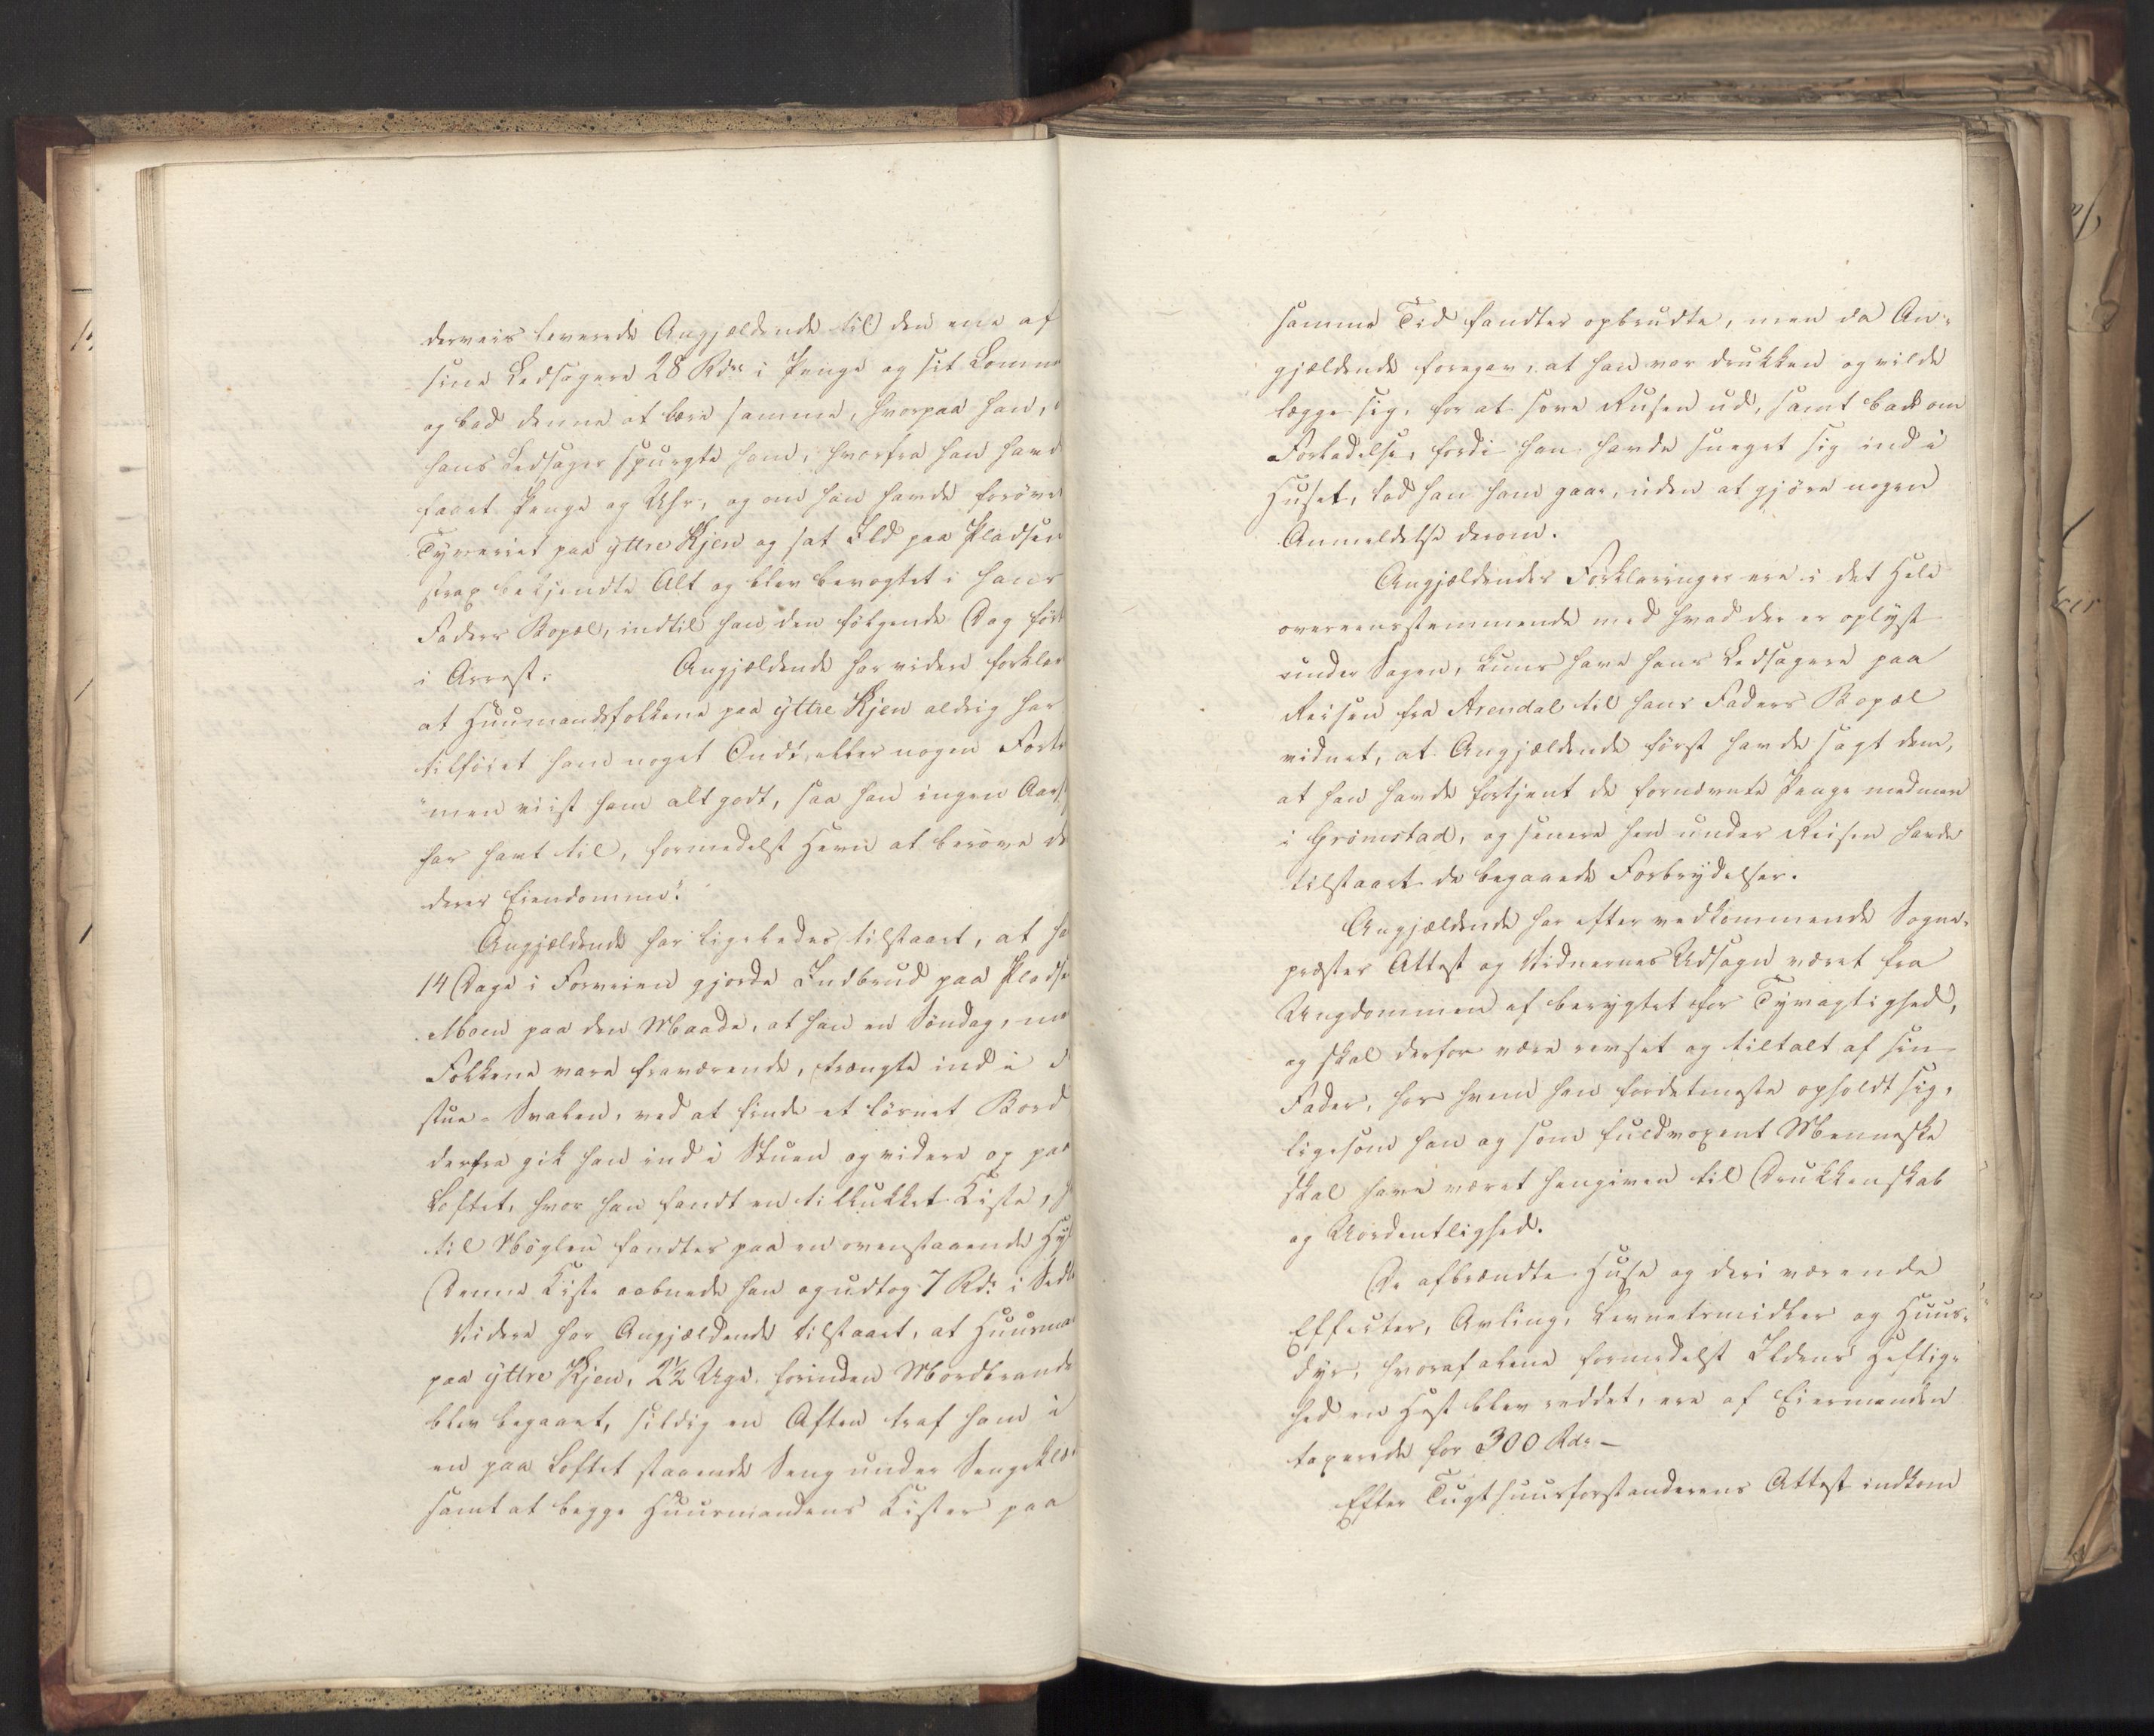 derveis leverede Angjældende til den ene af
sine Ledsagere 28 Rdr i Penge og sit Lomme
og bad denne at bære samme, hvorpaa han,
hans Ledsager spurgte ham, hvorfra han havd
faaet Penge og Uhr, og om han havde forøvet
Tyveriet paa yttre Kjen og sat Ild paa Pladsen
strax bekjendte Alt og blev bevogtet i hans
Faders Bopæl, indtil han den følgende Dag ført
i Arrest. Angjældende har videre forklar
at Huusmandsfolkene paa yttre Kjen aldrig har
tilføiet ham noget Ondt eller nogen Fortr
"men viist ham alt godt, saa han ingen Aars
har havt til, formedelst Hevn at berøve d
deres Eiendomme".
Angjældende har ligeledes tilstaaet, at ha
14 Dage i Forveien gjorde Indbrud paa Pladse
Moen paa den Maade, at han en Søndag, me
Folkene vare fraværende, trængte ind i
stue-Svalen, ved at finde et løsnet Bord
derfra gik han ind i Stuen og videre op paa
Loftet, hvor han fandt en tillukket Kiste, h
til Nøglen fandtes paa en ovenstaaende Hyl
Denne Kiste aabnede han og udtog 7 Rdr i Sedl
Videre har Angjældende tilstaaet, at Huusma
paa yttre Kjen, 2½ Uge forinden Mordbrande
blev begaaet, sildig en Aften traf ham i
en paa Loftet staaende Seng under Sengeklæ
samt at begge Huusmandens Kister paa
samme Tid fandtes opbrudte, men da An-
gjældende foregav, at han var drukken og vilde
lægge sig, for at sove Rusen ud, samt bad om
Forladelse, fordi han havde sneget sig ind i
Huset, lod han ham gaae, uden at gjøre nogen
Anmeldelse derom.
Angjældendes Forklaringer ere i det Hele
overeensstemmende med hvad der er oplyst
under Sagen, kuns have hans Ledsagere paa
Reisen fra Arendal til hans Faders Bopæl
vidnet, at Angjældende først havde sagt dem,
at han havde fortjent de fornævnte Penge med mere
i Grimstad, og senere hen under Reisen havde
tilstaaet de begaaede Forbrydelser.
Angjældende har efter vedkommende Sogne-
præstes Attest og Vidnernes Udsagn været fra
Ungdommen af berygtet for Tyvagtighed,
og skal derfor være revset og tiltalt af sin
Fader, hos hvem han fordetmeste opholdt sig,
ligesom han og som fuldvoxent Menneske
skal have været hengiven til Drukkenskab
og Uordentlighed.
De afbrændte Huse og deri værende
Effecter, Avling, Levnetsmidler og Huus-
dyr, hvoraf alene formedelst Ildens Heftig-
hed en Hest blev reddet, ere af Eiermanden
taxerede for 300 Rdr –
Efter Tugthuusforstanderens Attest indkom